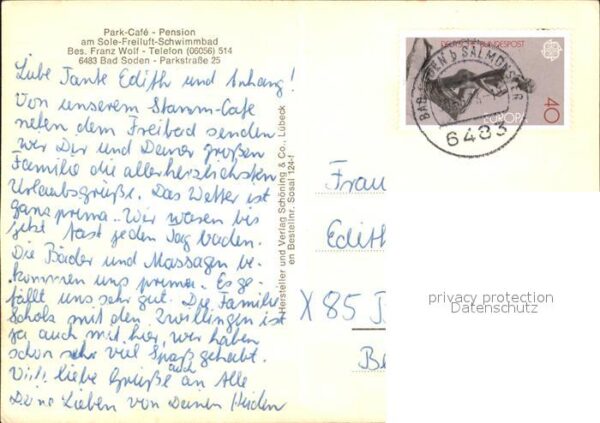 Park-Café - Pension
am Sole-Freiluft-Schwimmbad
Bes. Franz Wolf - Telefon (06056) 514
6483 Bad Soden - Parkstraße 25
Liebe Tante Edith und Anhang!
Von unserem Stamm-Cafe
neben dem Freibad senden
wir Dir und Deiner großen
Familie die allerherzlichsten
Urlaubsgrüße. Das Wetter ist
ganz prima. Wir waren bis
jetzt fast jeden Tag baden.
Die Bäder und Massagen be-
kommen uns prima. Es ge-
fällt uns sehr gut. Die Familie
Scholz mit den Zwillingen ist
ja auch mit hier, wir haben
schon sehr viel Spaß gehabt.
Viele liebe Grüße auch an Alle
Deine Lieben von Deinen Heiden
Hersteller und Verlag Schöning & Co., Lübeck
en Bestellnr. Sosal 124-f
DEUTSCHE BUNDESPOST
EUROPA
40
BAD SODEN B SALMÜNSTER
6483
Frau
Edith
X 85
Be
privacy protection
Datenschutz